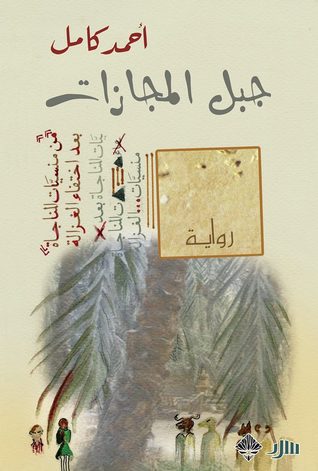 أحمد كامل
جبل المجازات
من منسيّات المناجاة
بعد اختفاء الغزالة
رواية
سرد